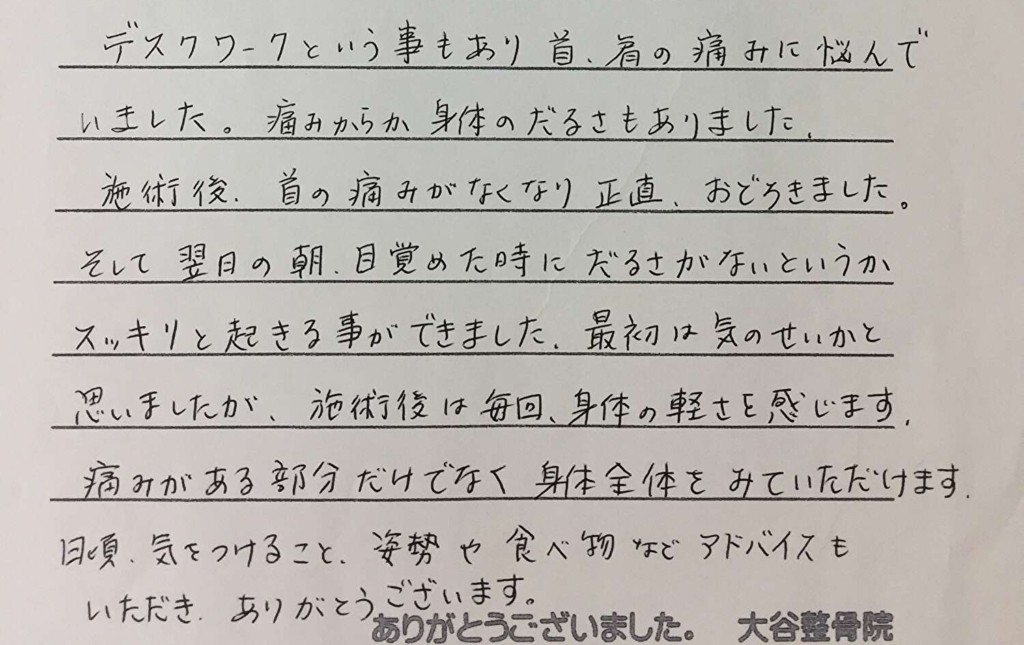 デスクワークという事もあり首、肩の痛みに悩んで
いました。痛みからか身体のだるさもありました、
施術後、首の痛みがなくなり正直、おどろきました。
そして翌日の朝、目覚めた時にだるさがないというか
スッキリと起きる事ができました、最初は気のせいかと
思いましたが、施術後は毎回、身体の軽さを感じます、
痛みがある部分だけでなく身体全体をみていただけます、
日頃、気をつけること、姿勢や食べ物などアドバイスも
いただき、ありがとうございます。
ありがとうございました。 大谷整骨院